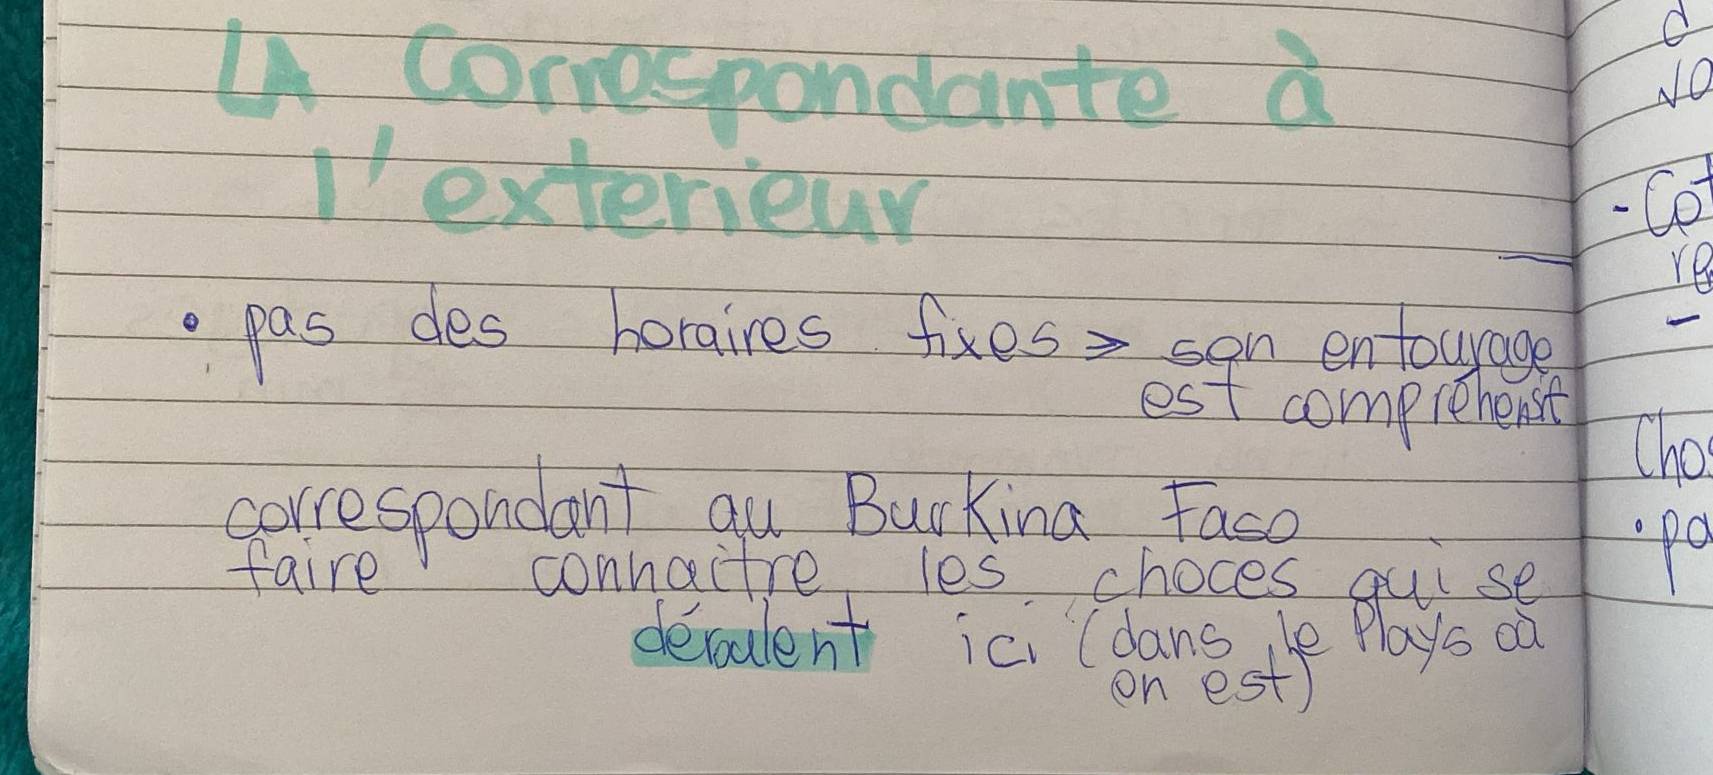 LA Correspondante à
l'exterieur
• pas des horaires fixes > son entourage
est compréhensif
correspondant au Burkina Faso
faire connaitre les choces qui se
déroulent ici (dans le Plays où
on est)
- Cot
re
-
Chos
• pa